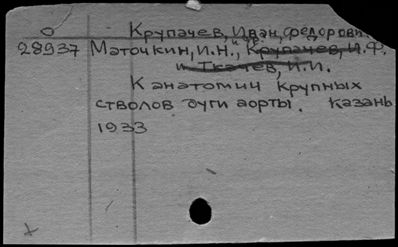 О Крупачев, Иван Федорович.
28937 Маточкин, И.Н., и др. Крупачев, И.Ф.
и Ткачев, И.И.
К анатомии крупных
стволов дуги аорты. Казань
1933